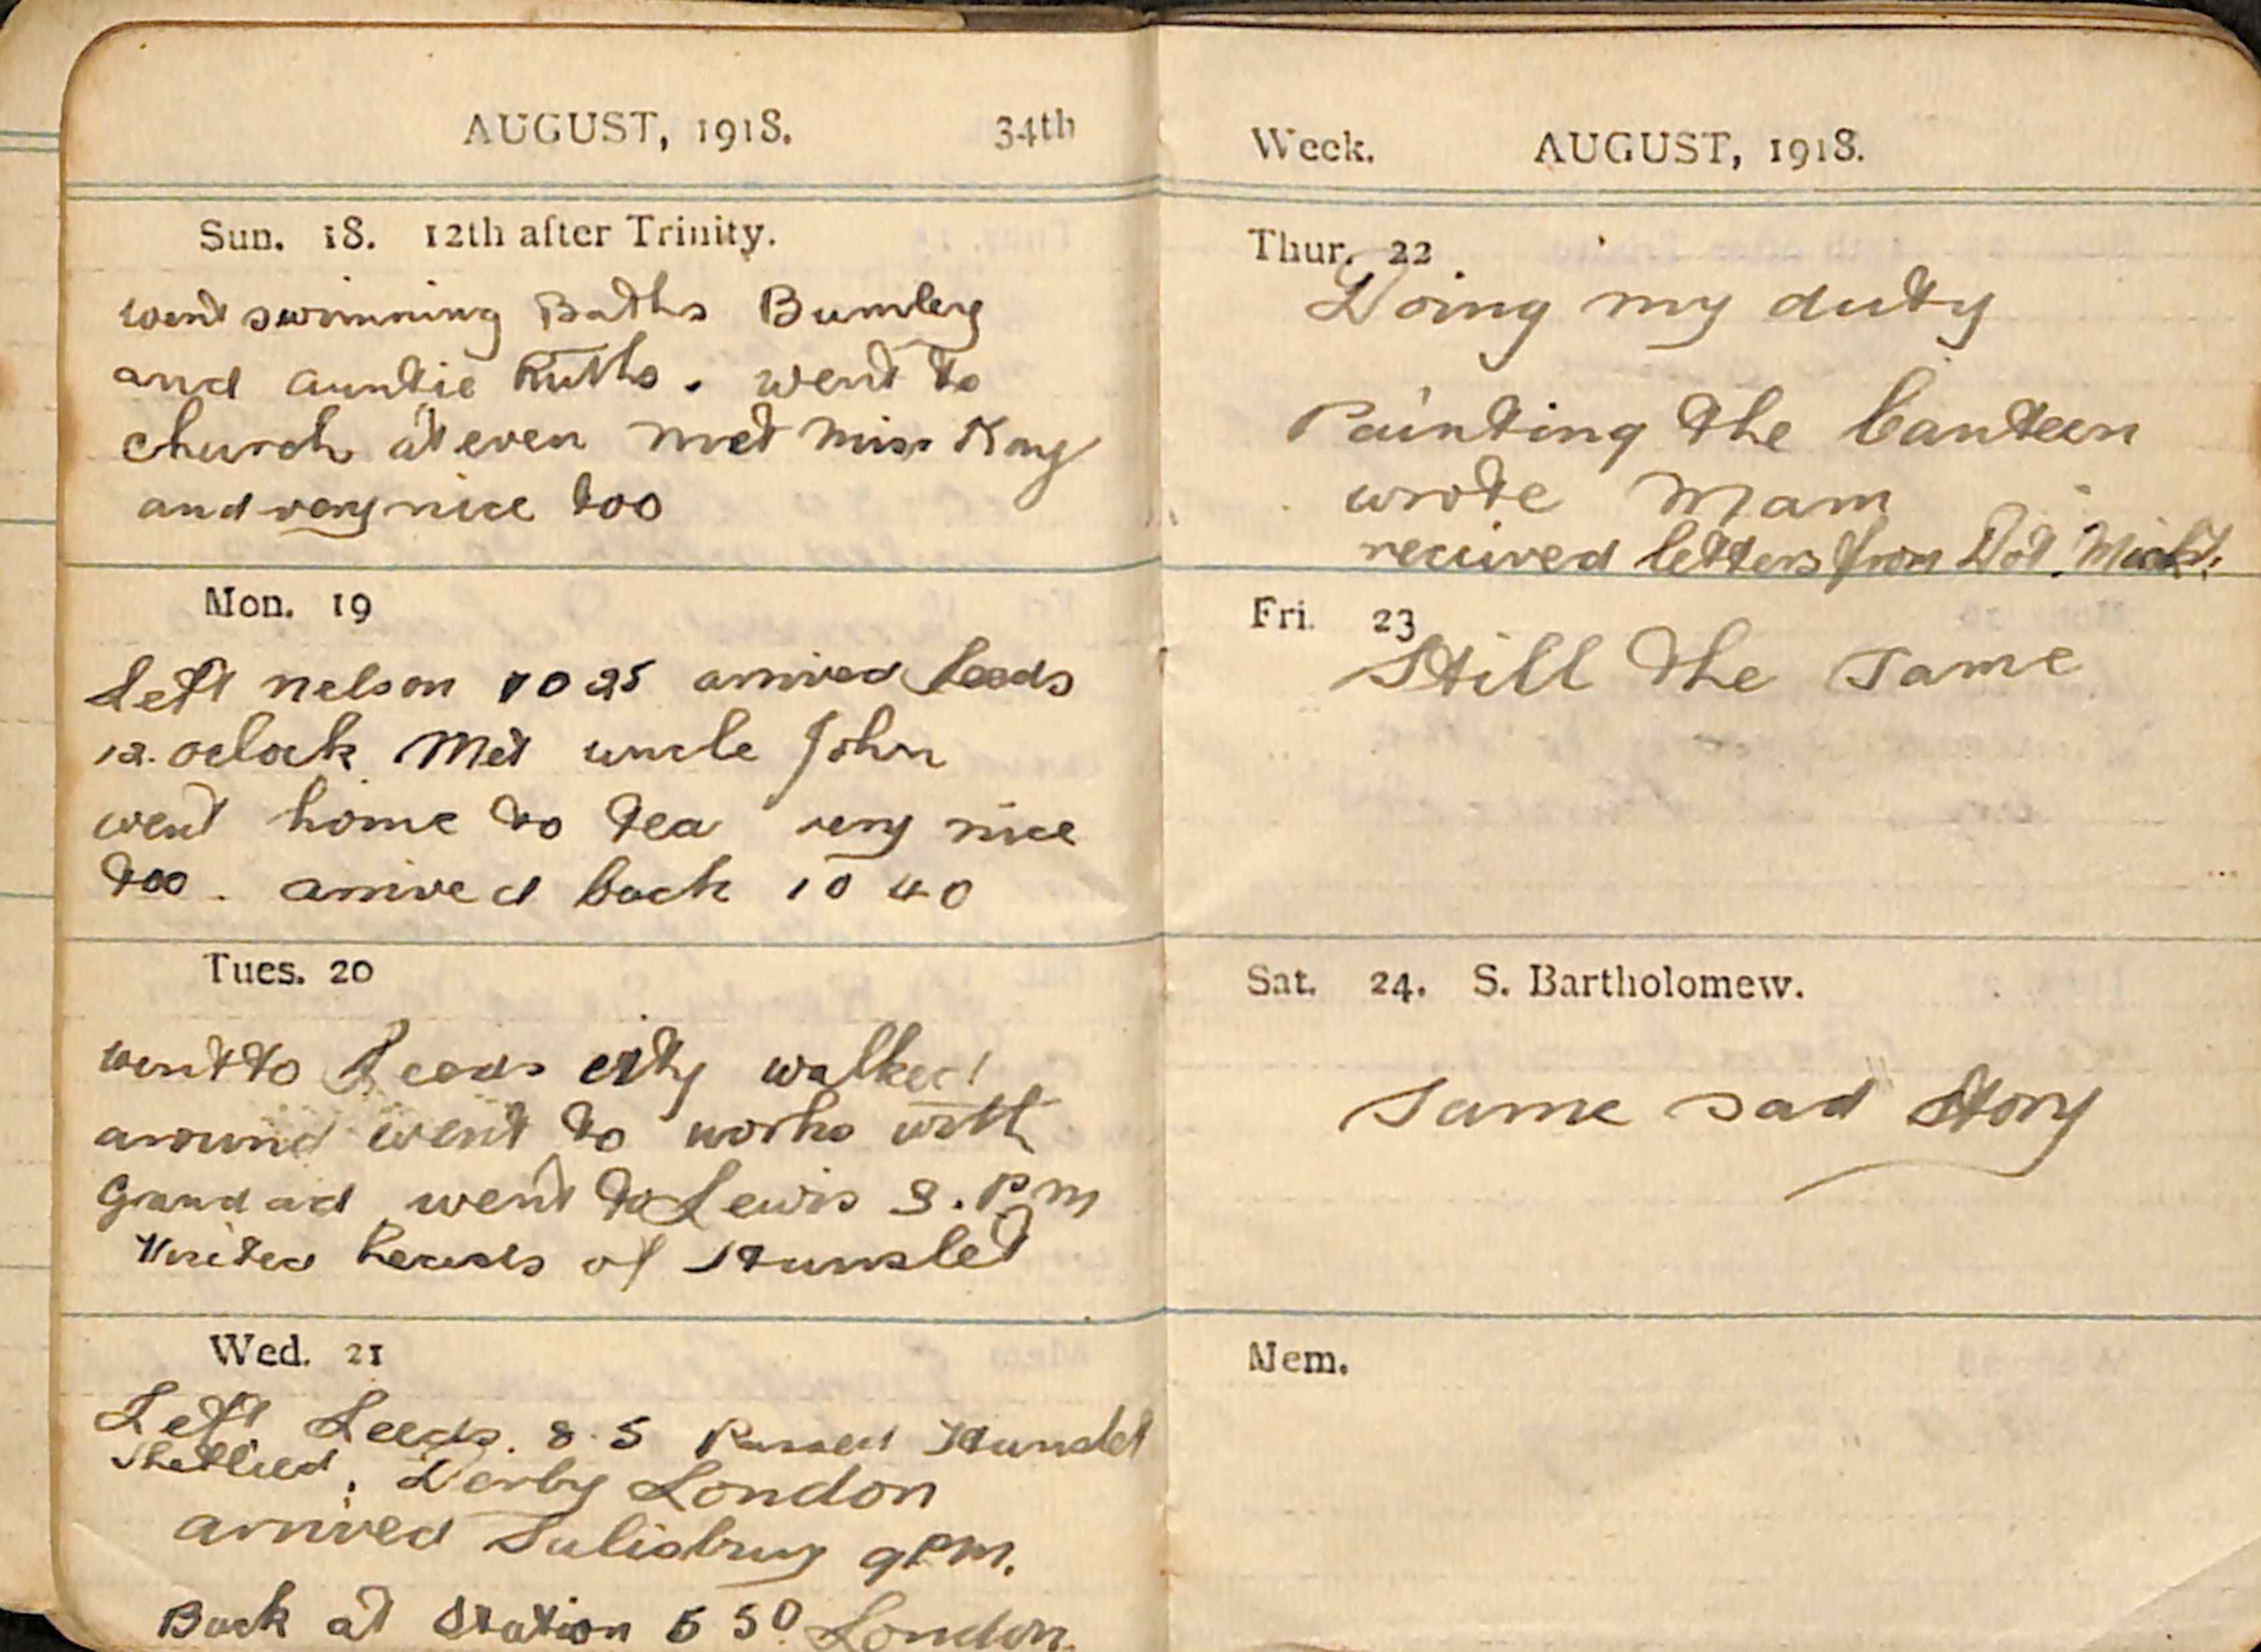 AUGUST, 1918. 34th
Sun. 18. 12th after Trinity.
went swimming Baths Burnley
and auntie Ruths. went to
church at even met miss Kay
and very nice too
Mon. 19
Left nelson 10 25 arrived Leeds
12. oclock Met uncle John
went home to tea very nice
too. arrived back 10 40
Tues. 20
went to Leeds city walked
around went to works with
Grandad went to Lewis 8. Pm
Visited of Hunslet
Wed. 21
Left Leeds. 8.5 Passed Hunslet
Derby London
arrived Salisbury 9 Pm.
Back at Station 5 50 London
Week. AUGUST, 1918.
Thur. 22
Doing my duty
Painting the Canteen
wrote Mam
received letters from Dot.
Fri. 23
Still the same
Sat. 24. S. Bartholomew.
Same sad story
Mem.